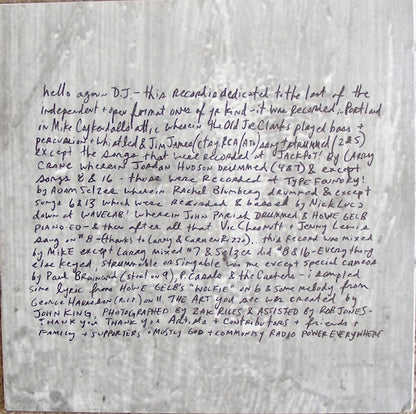 hello again - D.J. - this record is dedicated to the last of the
independent + open format ones of yr kind - it was recorded.. Portland
in Mike Coykendall's attic wherein the Old Joe Clarks played bass +
percussion + whistled & Jim James (ctsy RCA/ATO) sang + drummed (2 & 5)
except the songs that were recorded at JACKPOT! by LARRY
CRANE wherein Jordan HUDSON DRUMMED (4 & 7) & except
songs 8 & 16 - those were RECORDED at TYPE FOUNDRY!
by Adam Selzer wherein Rachel Blumberg drummed & except
songs 6 & 13 which were recorded & bassed by Nick Luca
down at WAVELAB! wherein JOHN PARISH DRUMMED & HOWE GELB
PIANO-ED - & then after all that Vic Chesnutt + Jenny Lewis
sang on #8 - (thanks to Larry & Carmen Rizzo). this record was mixed
by MIKE except Larry mixed #7 & Selzer did #8 & 16 - Everything
else keyed, strummable or singable was me except special cameos
by Paul Brainard (steel on 9), Ricardo & the Casteds - i sampled
some lyric from HOWE GELB'S "WOLFIE" on 6 & some melody from
GEORGE HARRISON (R.I.P.) on 11. THE ART you see was created by
JOHN KING, PHOTOGRAPHED BY ZAK RILES & ASSISTED BY ROB JONES -
THANK YOU THANK YOU + Contributors + friends +
FAMILY + SUPPORTERS + MOSTLY GOD + COMMUNITY RADIO POWER EVERYWHERE